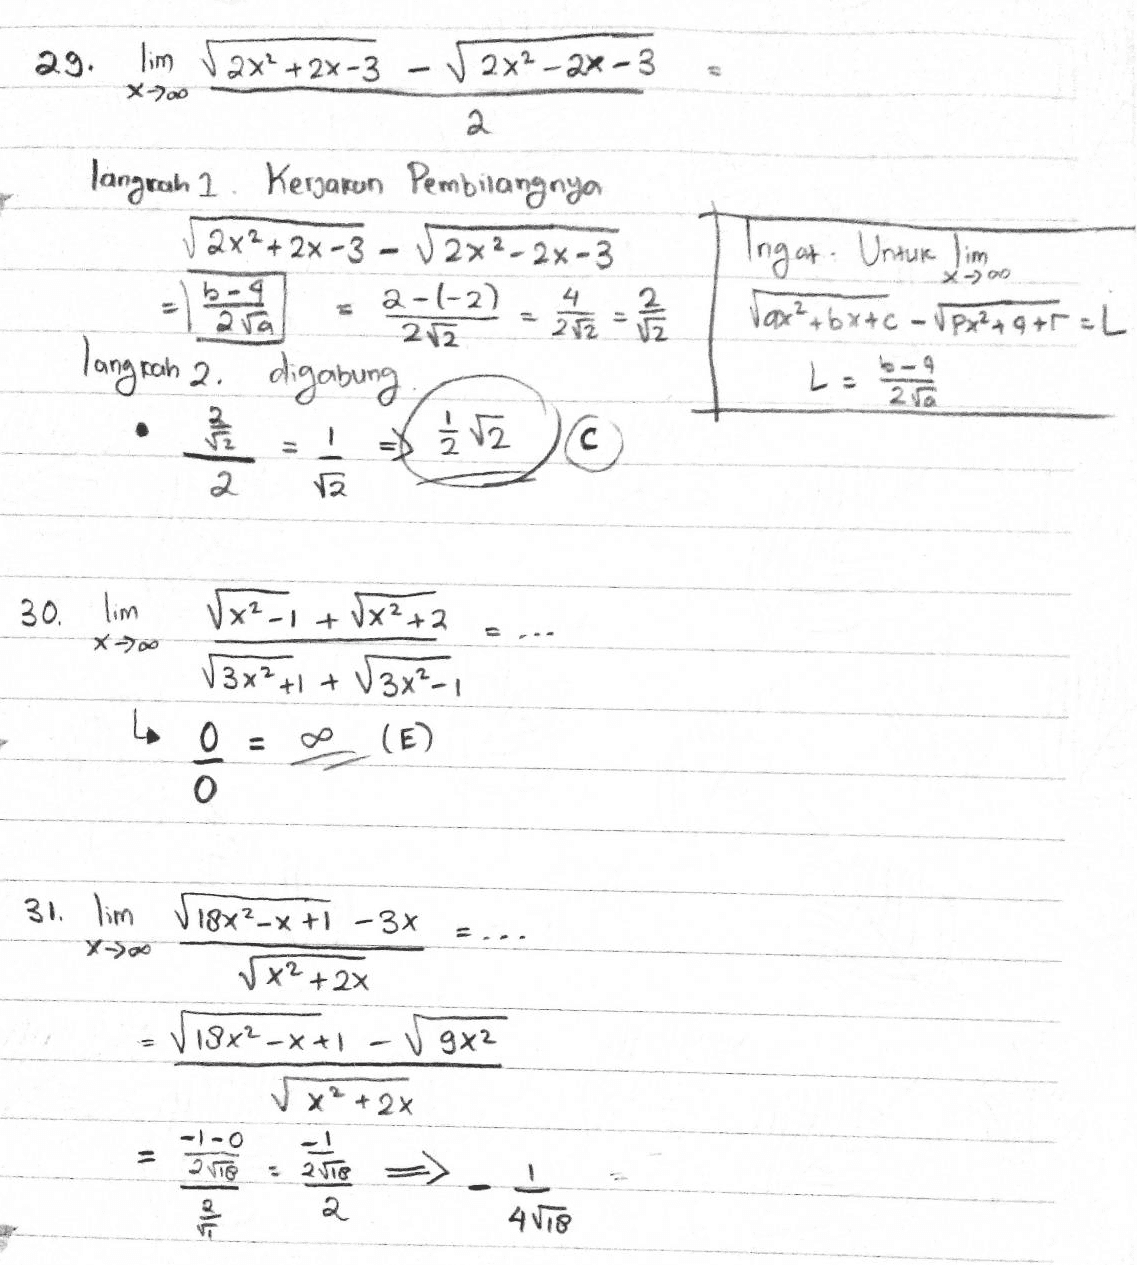 29. lim x→∞ (√(2x²+2x-3) - √(2x²-2x-3)) / 2 =
langkah 1. Kerjakan Pembilangnya
√(2x²+2x-3) - √(2x²-2x-3)
= (b-q)/(2√a) = (2-(-2))/(2√2) = 4/(2√2) = 2/√2
Ingat. Untuk lim x→∞
√(ax²+bx+c) - √(px²+q+r) = L
L = (b-q)/(2√a)
langkah 2. digabung.
• (2/√2)/2 = 1/√2 => 1/2 √2 (C)
30. lim x→∞ (√(x²-1) + √(x²+2)) / (√(3x²+1) + √(3x²-1)) = ...
↳ 0/0 = ∞ (E)
31. lim x→∞ (√(18x²-x+1) - 3x) / √(x²+2x) = ...
= (√(18x²-x+1) - √(9x²)) / √(x²+2x)
= ((-1-0)/(2√18)) / (2/√1) = (-1/(2√18)) / 2 ⟹ - 1/(4√18) =